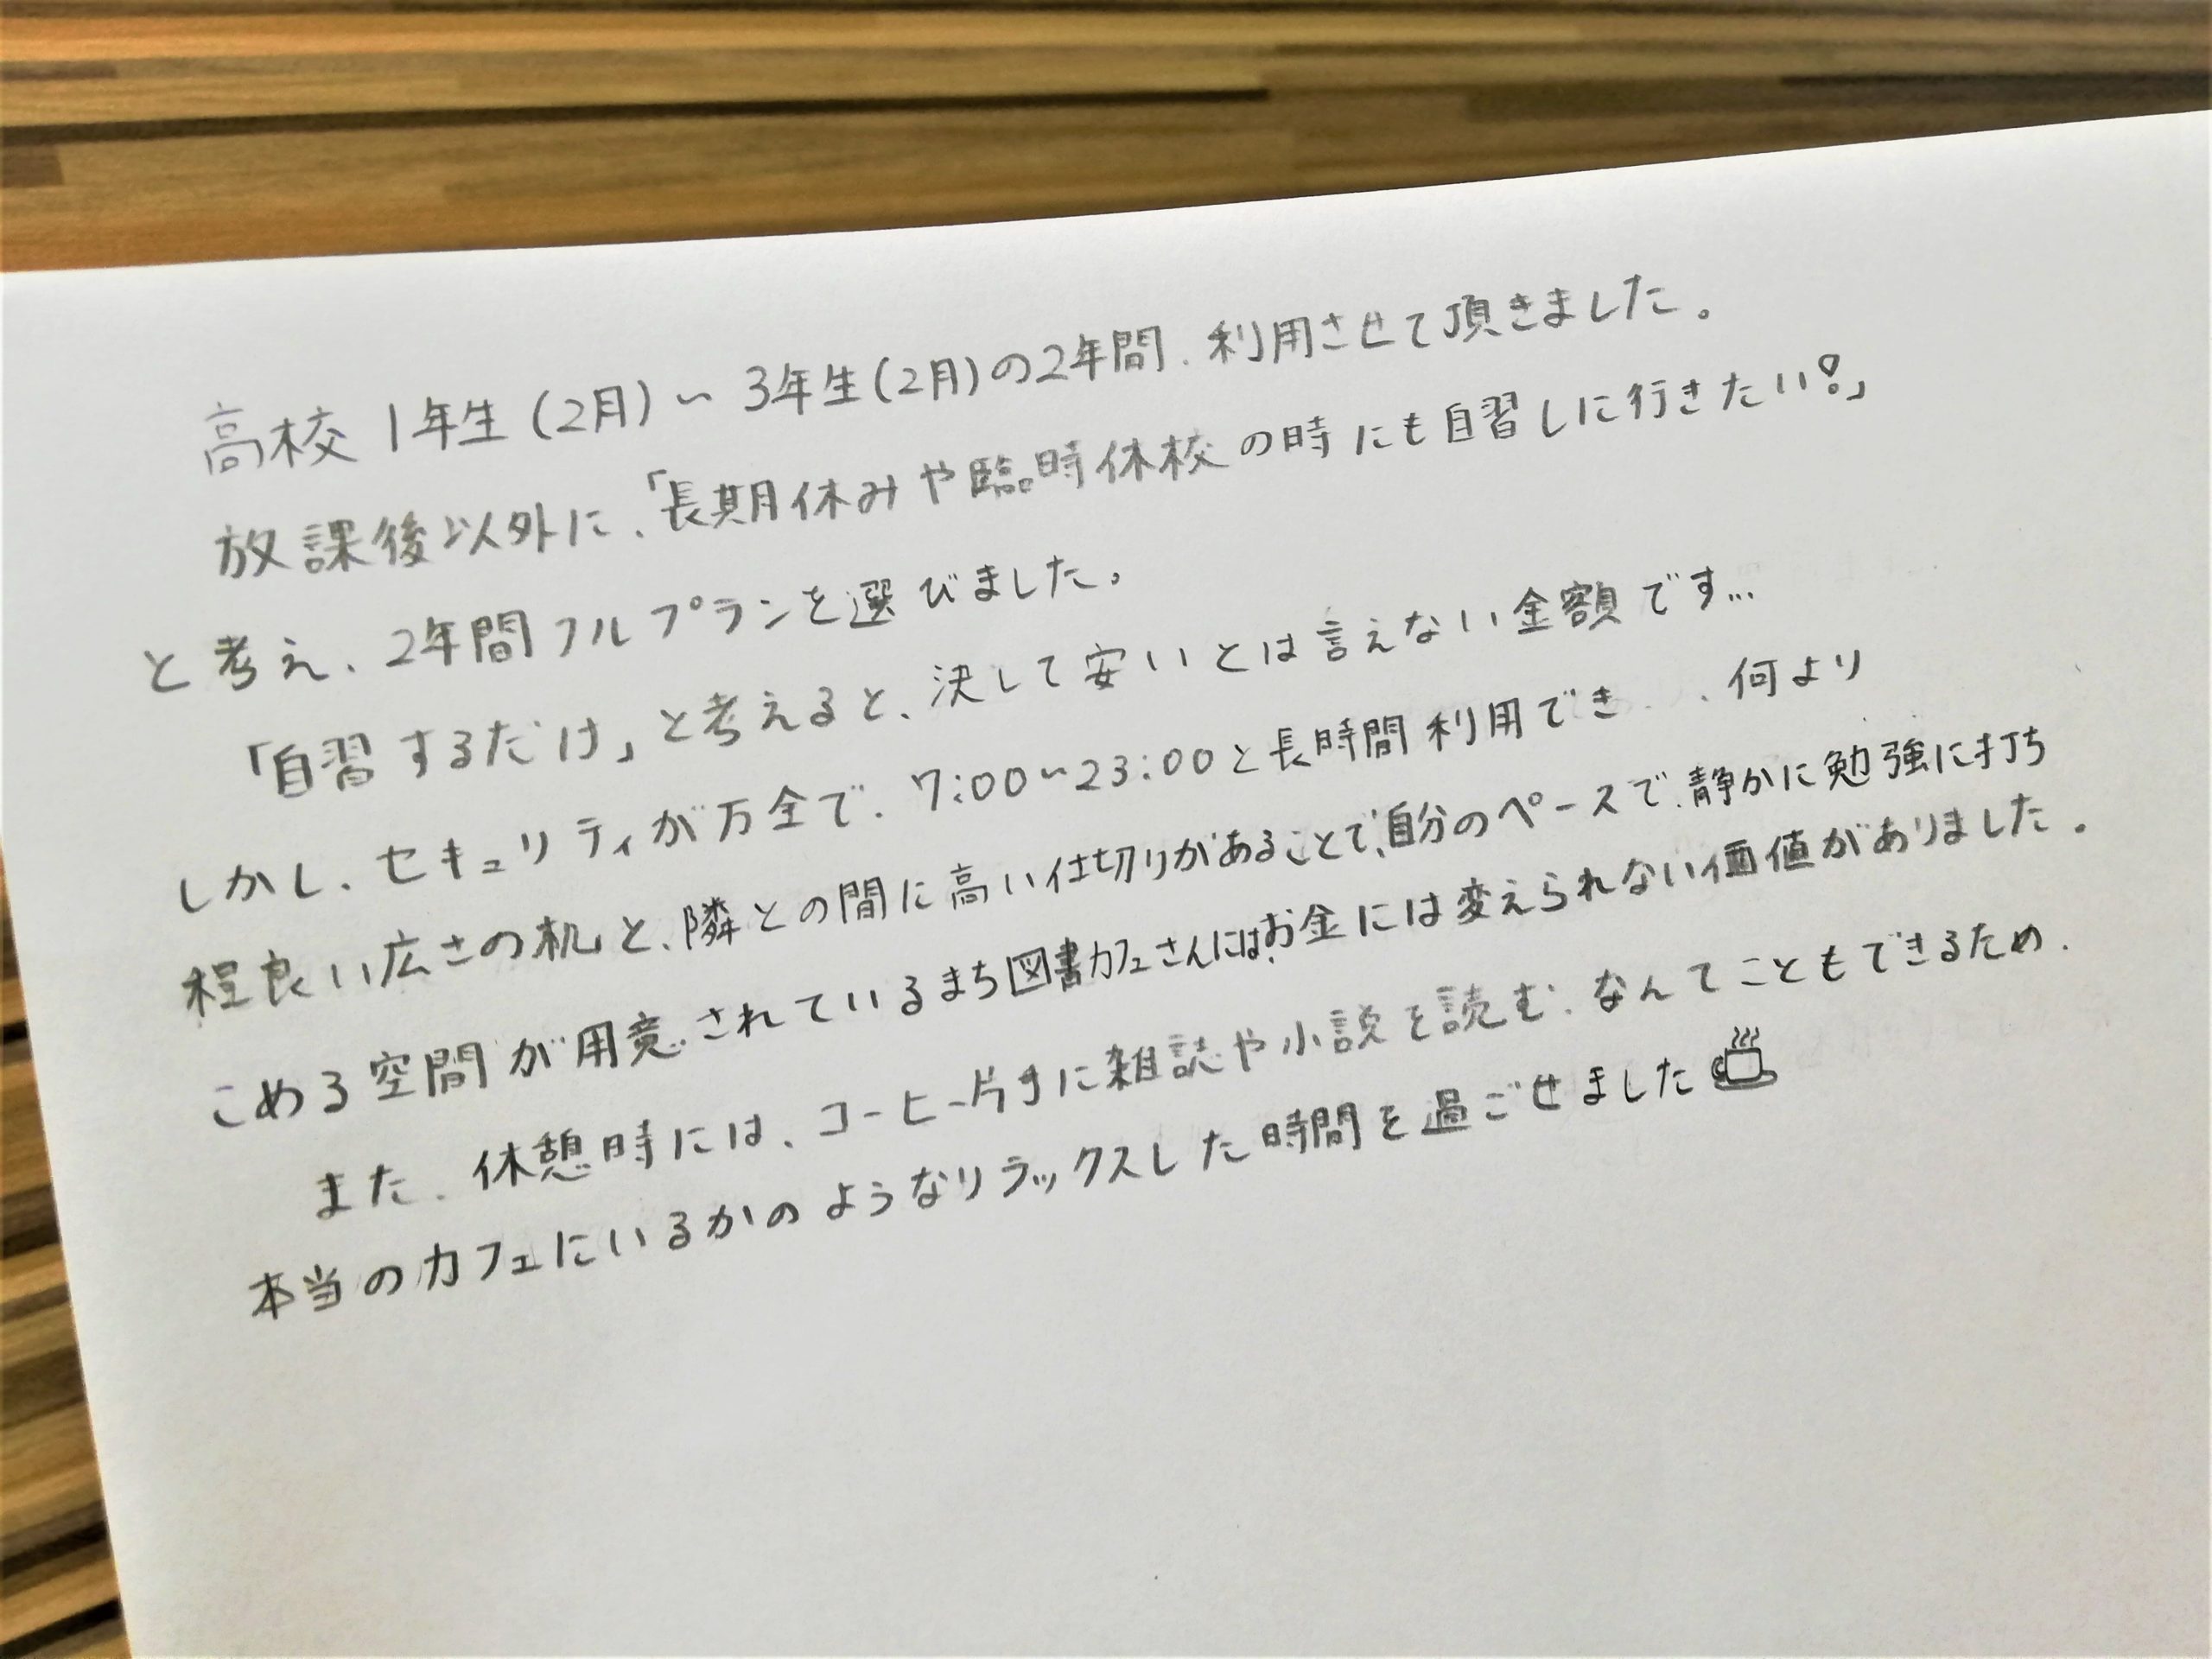 高校1年生(2月)～3年生(2月)の2年間、利用させて頂きました。
放課後以外に、「長期休みや臨時休校の時にも自習しに行きたい!」
と考え、2年間フルプランを選びました。
「自習するだけ」と考えると、決して安いとは言えない金額です…
しかし、セキュリティが万全で、7:00～23:00と長時間利用でき、何より
程良い広さの机と、隣との間に高い仕切りがあることで、自分のペースで、静かに勉強に打ち
こめる空間が用意されているまち図書カフェさんには、お金には変えられない価値がありました。
また、休憩時には、コーヒー片手に雑誌や小説を読む、なんてこともできるため、
本当のカフェにいるかのようなリラックスした時間を過ごせました